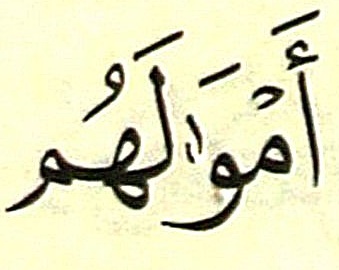 أَمْوَٰلَهُم